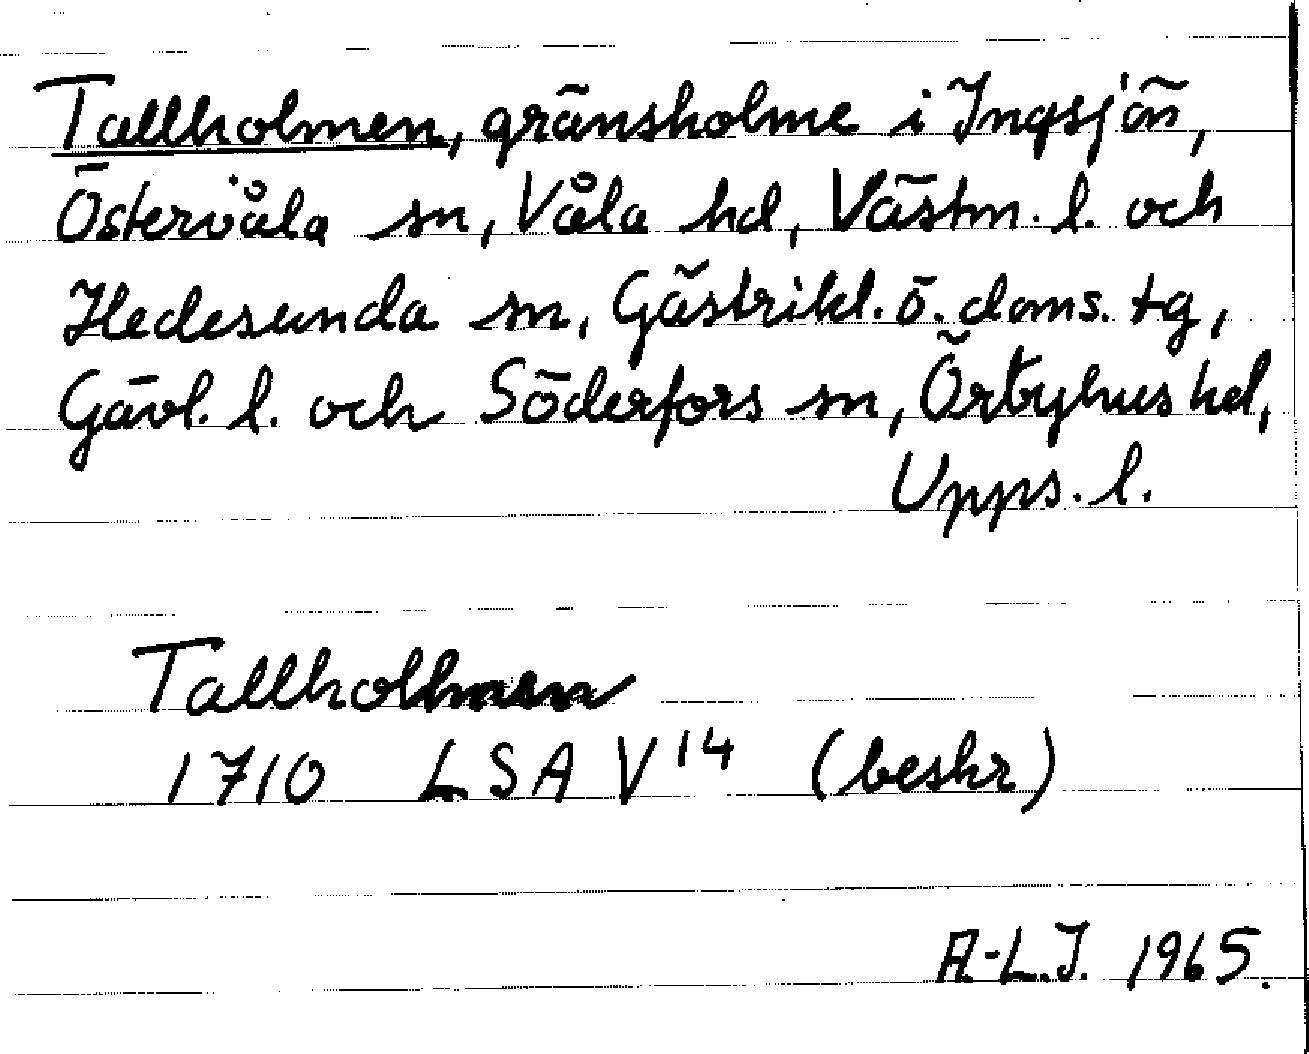 Tallholmen, gränsholme i Ingsjön,
Östervåla sn, Våla hd, Västm. l. och
Hedesunda sn, Gästrikl. ö. doms. tg,
Gävl. l. och Söderfors sn, Örbyhus hd,
Upps. l.
Tallholmen
1710 LSA V 14 (beskr)
A-L.J. 1965.